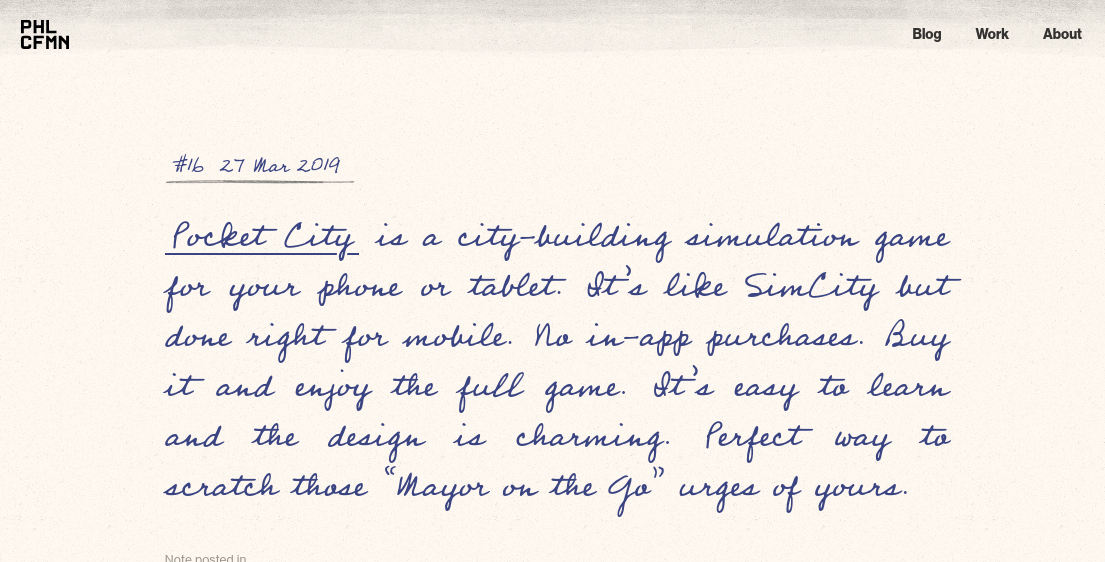 PHL
CFMN
Blog Work About
#16 27 Mar 2019
Pocket City is a city-building simulation game
for your phone or tablet. It's like SimCity but
done right for mobile. No in-app purchases. Buy
it and enjoy the full game. It's easy to learn
and the design is charming. Perfect way to
scratch those “Mayor on the Go” urges of yours.
Note posted in